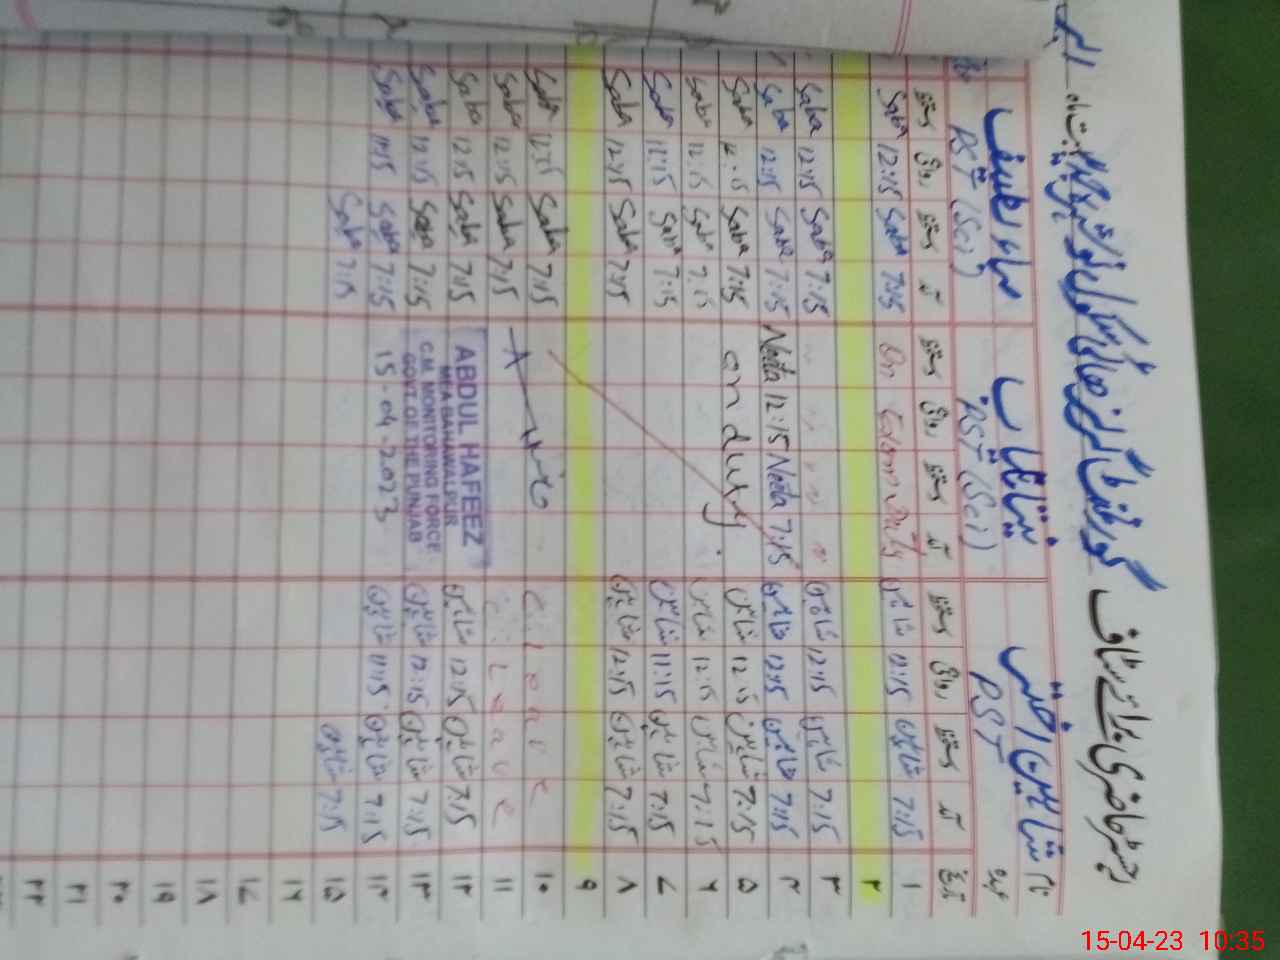 رجسٹر حاضری برائے سٹاف گورنمنٹ گرلز ہائی سکول
نام شاہین اختر
عہدہ PST PST (Sci) PST (Sci)
تاریخ آمد دستخط روانگی دستخط آمد دستخط روانگی دستخط آمد دستخط روانگی دستخط
۱ 7:15 شاہین 12:15 شاہین On Exam Duty 7:15 Saba 12:15 Saba
۲
۳ 7:15 شاہین 12:15 شاہین " " " 7:15 Saba 12:15 Saba
۴ 7:15 شاہین 12:15 شاہین 7:15 Neeta 12:15 Neeta 7:15 Saba 12:15 Saba
۵ 7:15 شاہین 12:15 شاہین on duty 7:15 Saba 12:15 Saba
۶ 7:15 شاہین 12:15 شاہین 7:15 Saba 12:15 Saba
۷ 7:15 شاہین 11:15 شاہین 7:15 Saba 12:15 Saba
۸ 7:15 شاہین 12:15 شاہین 7:15 Saba 12:15 Saba
۹
۱۰ C. Leave 7:15 Saba 12:15 Saba
۱۱ C. Leave 7:15 Saba 12:15 Saba
۱۲ 7:15 شاہین 12:15 شاہین 7:15 Saba 12:15 Saba
۱۳ 7:15 شاہین 12:15 شاہین 7:15 Saba 12:15 Saba
۱۴ 7:15 شاہین 11:15 شاہین 7:15 Saba 11:15 Saba
۱۵ 7:15 شاہین 7:15 Saba
۱۶
۱۷
۱۸
۱۹
۲۰
۲۱
۲۲
ABDUL HAFEEZ
MEA BAHAWALPUR
C.M. MONITORING FORCE
GOVT. OF THE PUNJAB
15-04-2023
15-04-23 10:35